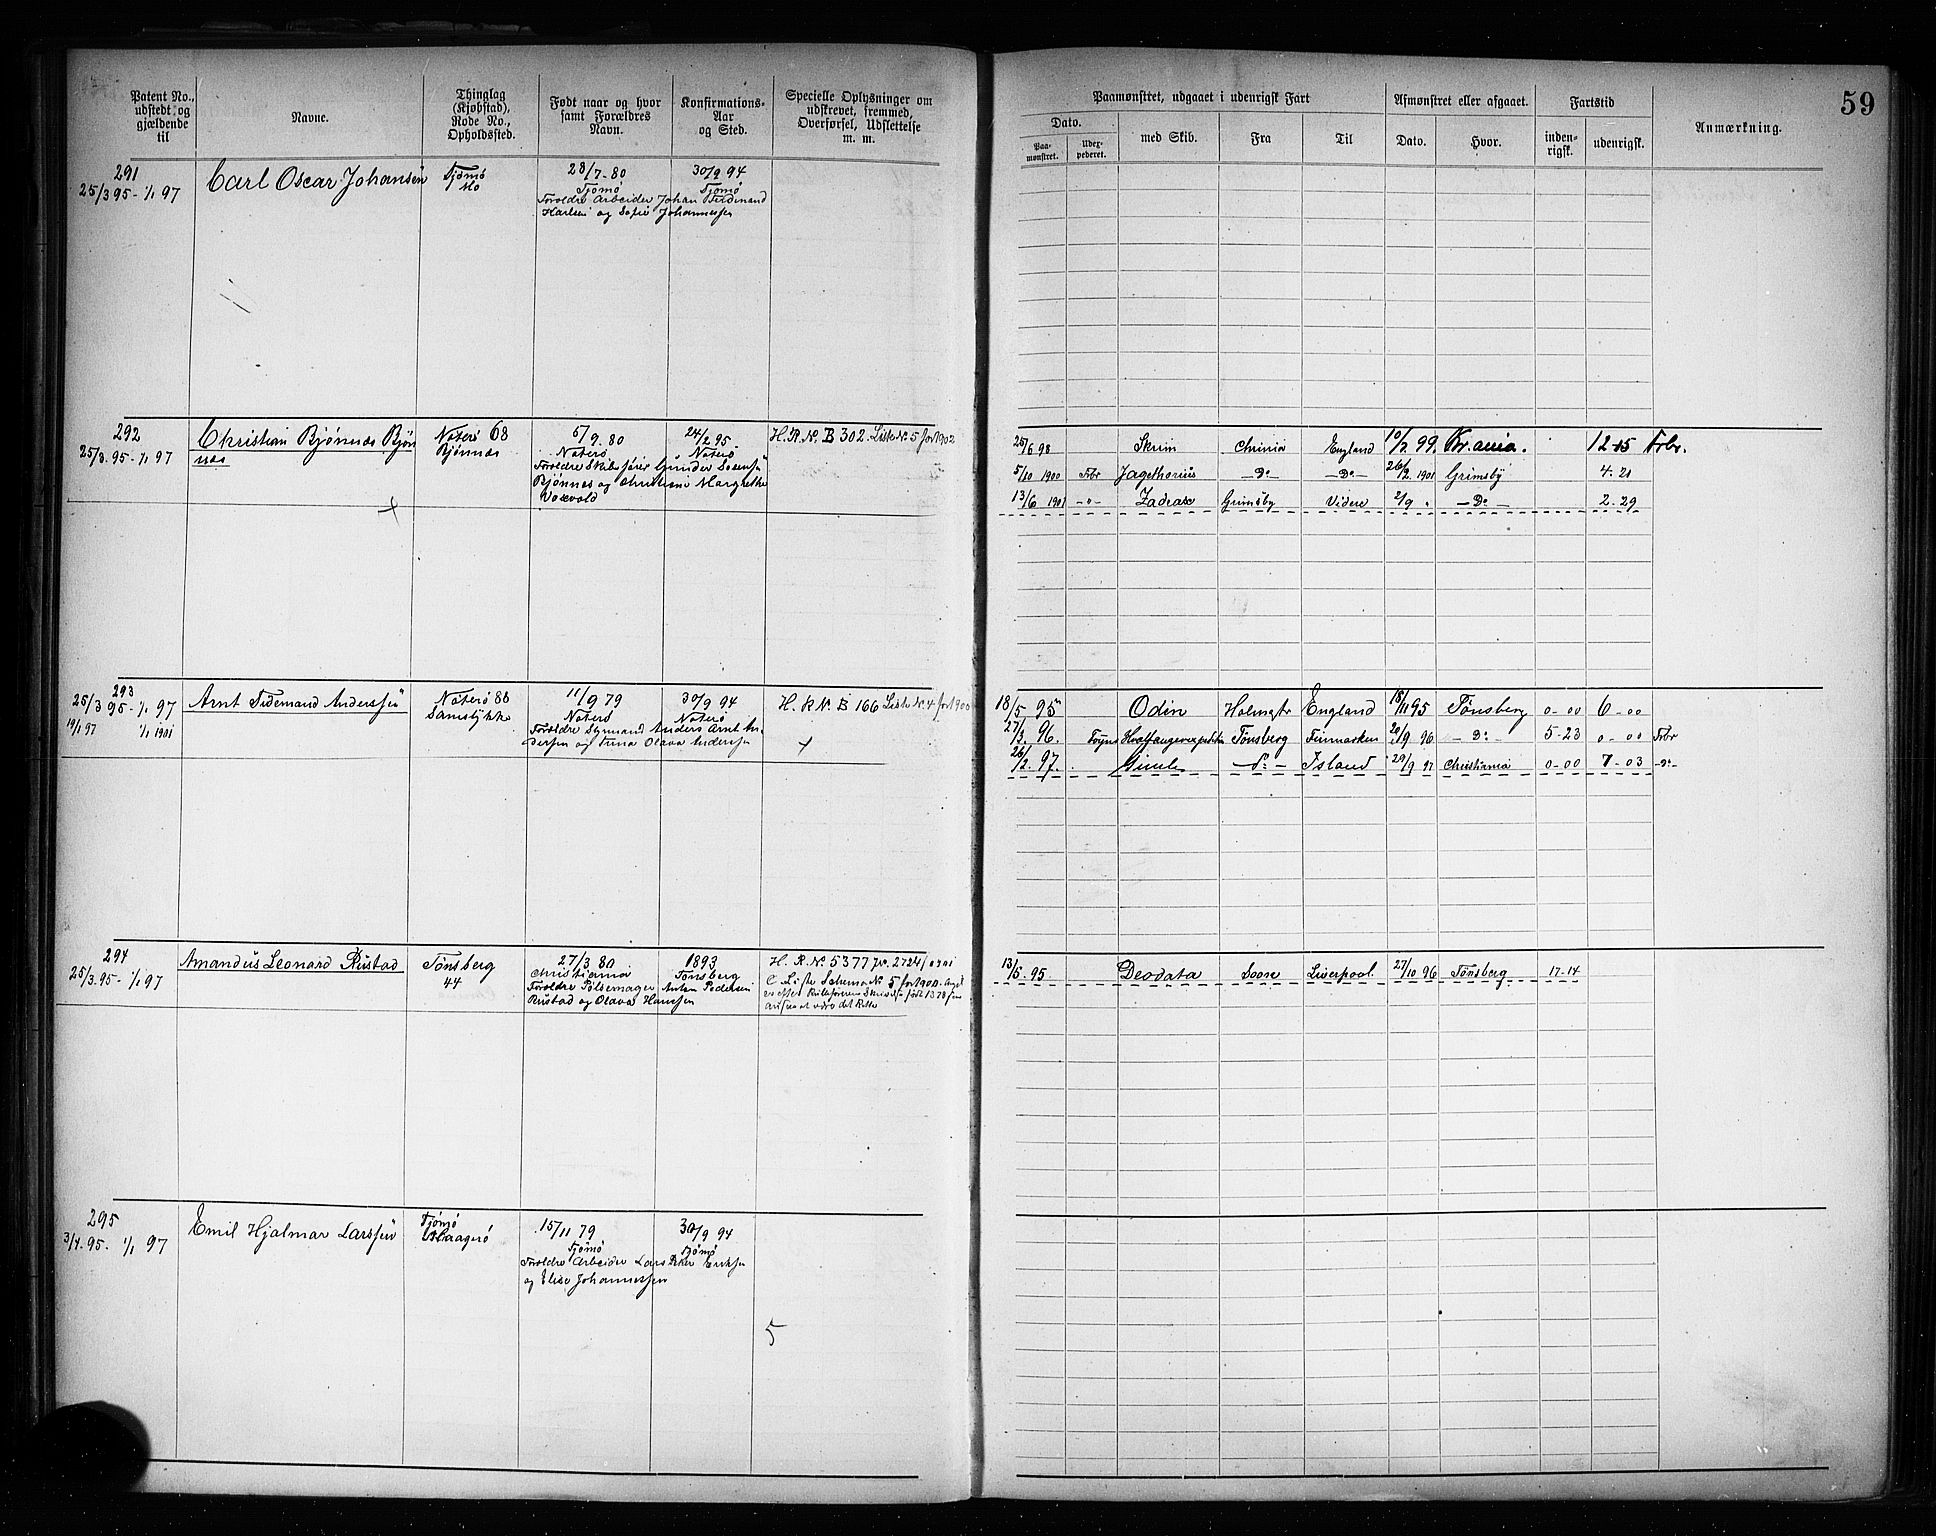 59
Patent No., udstedt og gjældende til
Navne.
Thinglag (Kjøbstad), Rode No., Opholdssted.
Født naar og hvor samt Forældres Navn.
Konfirmations-Aar og Sted.
Specielle Oplysninger om udskrevet, fremmed, Overførsel, Udslettelse m. m.
Paamønstret, udgaaet i udenrigsk Fart
Afmønstret eller afgaaet.
Fartstid
Anmærkning.
Dato.
med Skib.
Fra
Til
Dato.
Hvor.
inden-rigsk.
udenrigsk.
Paa-mønstret.
Udex-pederet.
291
25/3 95 - 1/1 97
Carl Oscar Johansen
Tjømø
Mo
28/7 - 80
Tjømø
30/9 94
Tjømø
Foreldre Arbeider Johan Ferdinand
Karlsen og Sofie Johannessen
292
25/3 95 - 1/1 97
Christian Bjønnæs Bjøn
næs
Nøterø 68
Bjønnæs
5/9. 80
Nøterø
24/2 95
Nøterø
Foreldre Skibsfører Gunder
Bjønnes og Christiane Margrethe
H.R.No. B 302. Liste No. 5 for 1902
25/6 98 Skrim Chrinia England 10/2 99. Kr.ania. 12-15 Frbr.
5/10 1900 Frbr -Do- -Do- 26/2 1901 Grimsby 4-21
13/6 1901 -o- Grimsby Videre 2/9 -Do- 2-29
293
25/3 95 - 1/1 97
19/1 97 1/1 1901
Arnt Tidemand Anderssen
Nøterø 88
11/9 79
Nøterø
30/9 94
Nøterø
Foreldre Styrmand Anders Arnt An-
derssen og Trina Olava Anderssen
H. R. No. B 166 Liste No. 4 for 1900
18/5 95 Odin Holmestr England 18/11 95 Tønsberg 0-00 6-00
27/3. 96. Hvalfangerexpedition Tønsberg Finmarken 20/9 96 -Do- 5-23 0-00 Frbr
26/2. 97. Gimle -Do- Island 29/9 97 Christiania 0-00 7-03 -Do-
294
25/3. 95 - 1/1 97
Amandus Leonard Rustad
Tønsberg
44
27/3 80
Christiania
1893
Tønsberg
Foreldre Pølsemager Anton Pedersen
Rustad og Olava Hanssen
H. R. No. 5377
13/5. 95. Deodata Liverpool. 27/10 96 Tønsberg 17-14
295
3/4. 95. 1/1 97
Emil Hjalmar Larssen
Tjømø
Haagerø
15/11 79
Tjømø
30/9 94
Tjømø
Foreldre Arbeider Lars Peter Eriksen
og Elise Johannessen
5